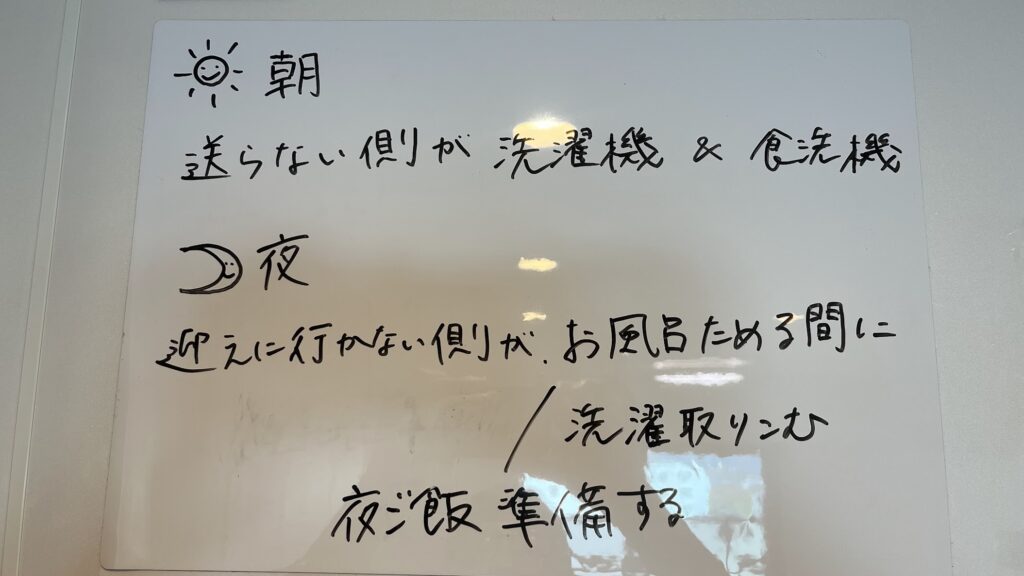 朝
送らない側が 洗濯機 & 食洗機
夜
迎えに行かない側が、お風呂ためる間に
/ 洗濯取りこむ
夜ご飯 準備する